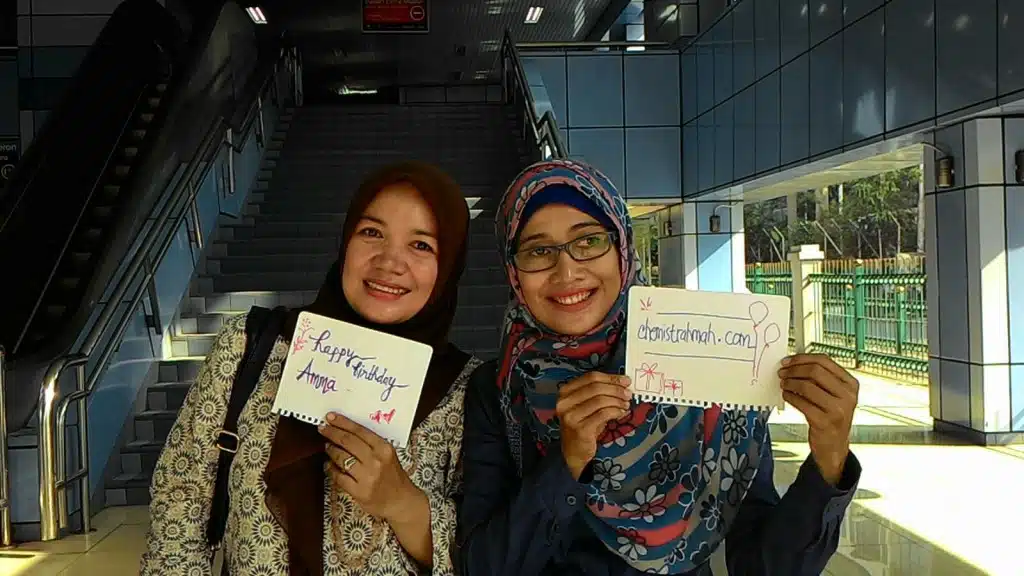 happy
Birthday
Amma
chemistrahmah.com